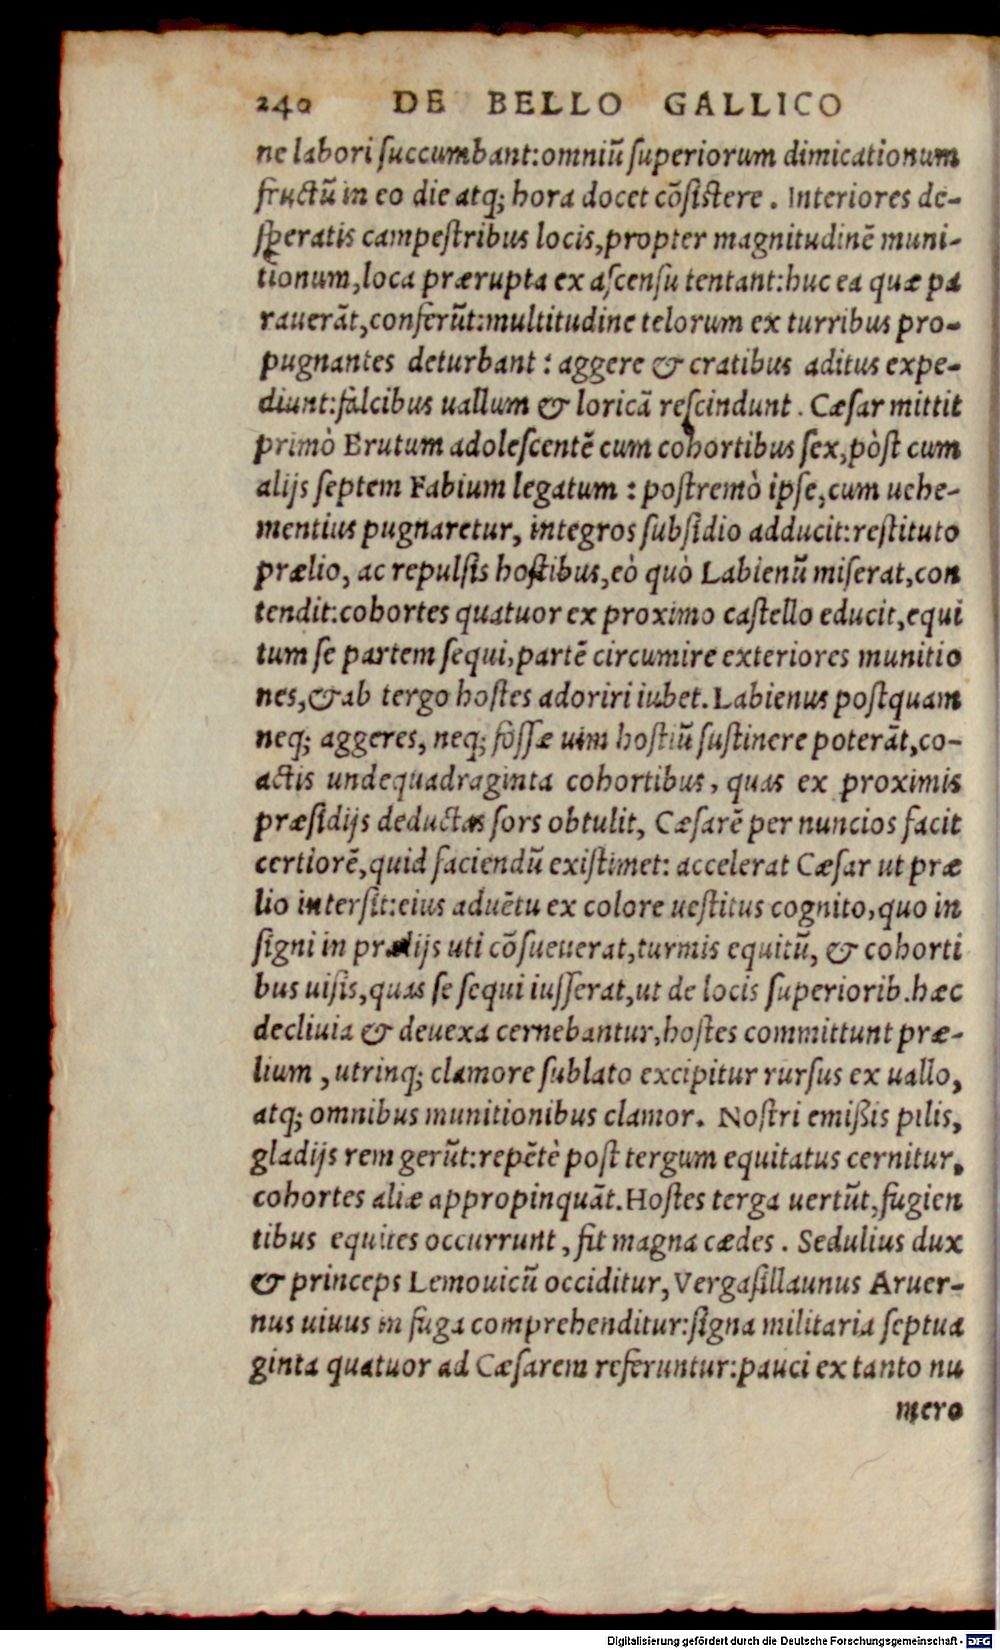 240 DE BELLO GALLICO
ne labori ſuccumbant:omniũ ſuperiorum dimicationum
fructũ in eo die atq; hora docet cõſiſtere . Interiores de-
ſperatis campeſtribus locis,propter magnitudinẽ muni-
tionum,loca prærupta ex aſcenſu tentant:huc ea quæ pa
rauerãt,conferũt:multitudine telorum ex turribus pro-
pugnantes deturbant : aggere & cratibus aditus expe-
diunt:falcibus uallum & loricã reſcindunt . Cæſar mittit
primò Brutum adoleſcentẽ cum cohortibus ſex,pòſt cum
alijs ſeptem Fabium legatum : poſtremò ipſe,cum uehe-
mentius pugnaretur, integros ſubſidio adducit:reſtituto
prælio, ac repulſis hoſtibus,eò quò Labienũ miſerat,con
tendit:cohortes quatuor ex proximo caſtello educit,equi
tum ſe partem ſequi,partẽ circumire exteriores munitio
nes,& ab tergo hoſtes adoriri iubet.Labienus poſtquam
neq; aggeres, neq; foſſæ uim hoſtiũ ſuſtinere poterãt,co-
actis undequadraginta cohortibus, quas ex proximis
præſidijs deductas ſors obtulit, Cæſarẽ per nuncios facit
certiorẽ,quid faciendũ exiſtimet: accelerat Cæſar ut præ
lio interſit:eius aduẽtu ex colore ueſtitus cognito,quo in
ſigni in prælijs uti cõſueuerat,turmis equitũ, & cohorti
bus uiſis,quas ſe ſequi iuſſerat,ut de locis ſuperiorib.hæc
decliuia & deuexa cernebantur,hoſtes committunt præ-
lium , utrinq; clamore ſublato excipitur rurſus ex uallo,
atq; omnibus munitionibus clamor. Noſtri emißis pilis,
gladijs rem gerũt:repẽtè poſt tergum equitatus cernitur,
cohortes aliæ appropinquãt.Hoſtes terga uertũt,fugien
tibus equites occurrunt , fit magna cædes . Sedulius dux
& princeps Lemouicũ occiditur, Vergaſillaunus Aruer-
nus uiuus in fuga comprehenditur:ſigna militaria ſeptua
ginta quatuor ad Cæſarem referuntur:pauci ex tanto nu
mero
Digitalisierung gefördert durch die Deutsche Forschungsgemeinschaft - DFG